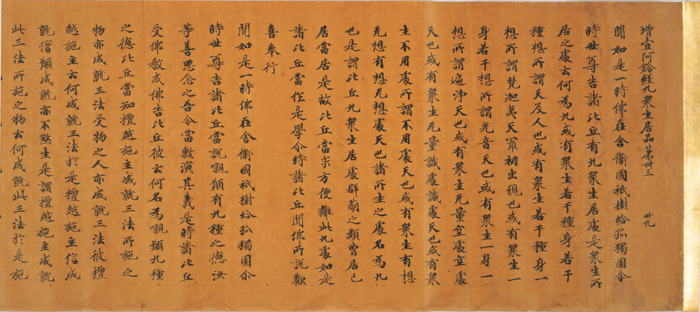 增壹阿鋡經九衆生居品第卅三　廿九
聞如是一時佛在舍衛國祇樹給孤獨園尒
時世尊告諸比丘有九衆生居處是衆生所
居之處云何為九或有衆生若干種身若干
種想所謂天及人也或有衆生若干種身一
想所謂梵迦夷天最初出現也或有衆生一
身若干想所謂光音天也或有衆生一身一
想所謂遍淨天也或有衆生无量空處空處
天也或有衆生无量識處識處天也或有衆
生不用處所謂不用處天也或有衆生有想
无想有想无想處天也諸所生之處名為九
也是謂比丘九衆生居處群萠之類曾居已
居當居是故比丘當求方便離此九處如是
諸比丘當作是學尒時諸比丘聞佛所說歡
喜奉行
聞如是一時佛在舍衛國祇樹給孤獨園尒
時世尊告諸比丘當說嚫願有九種之德汝
等善思念之吾今當敷演其義是時諸比丘
受佛教戒佛告比丘彼云何名為嚫願九種
之德比丘當知檀越施主成就三法所施之
物亦成就三法受物之人亦成就三法彼檀
越施主云何成就三法於是檀越施主信成
就誓願成就亦不煞生是謂檀越施主成就
此三法所施之物云何成就此三法於是施